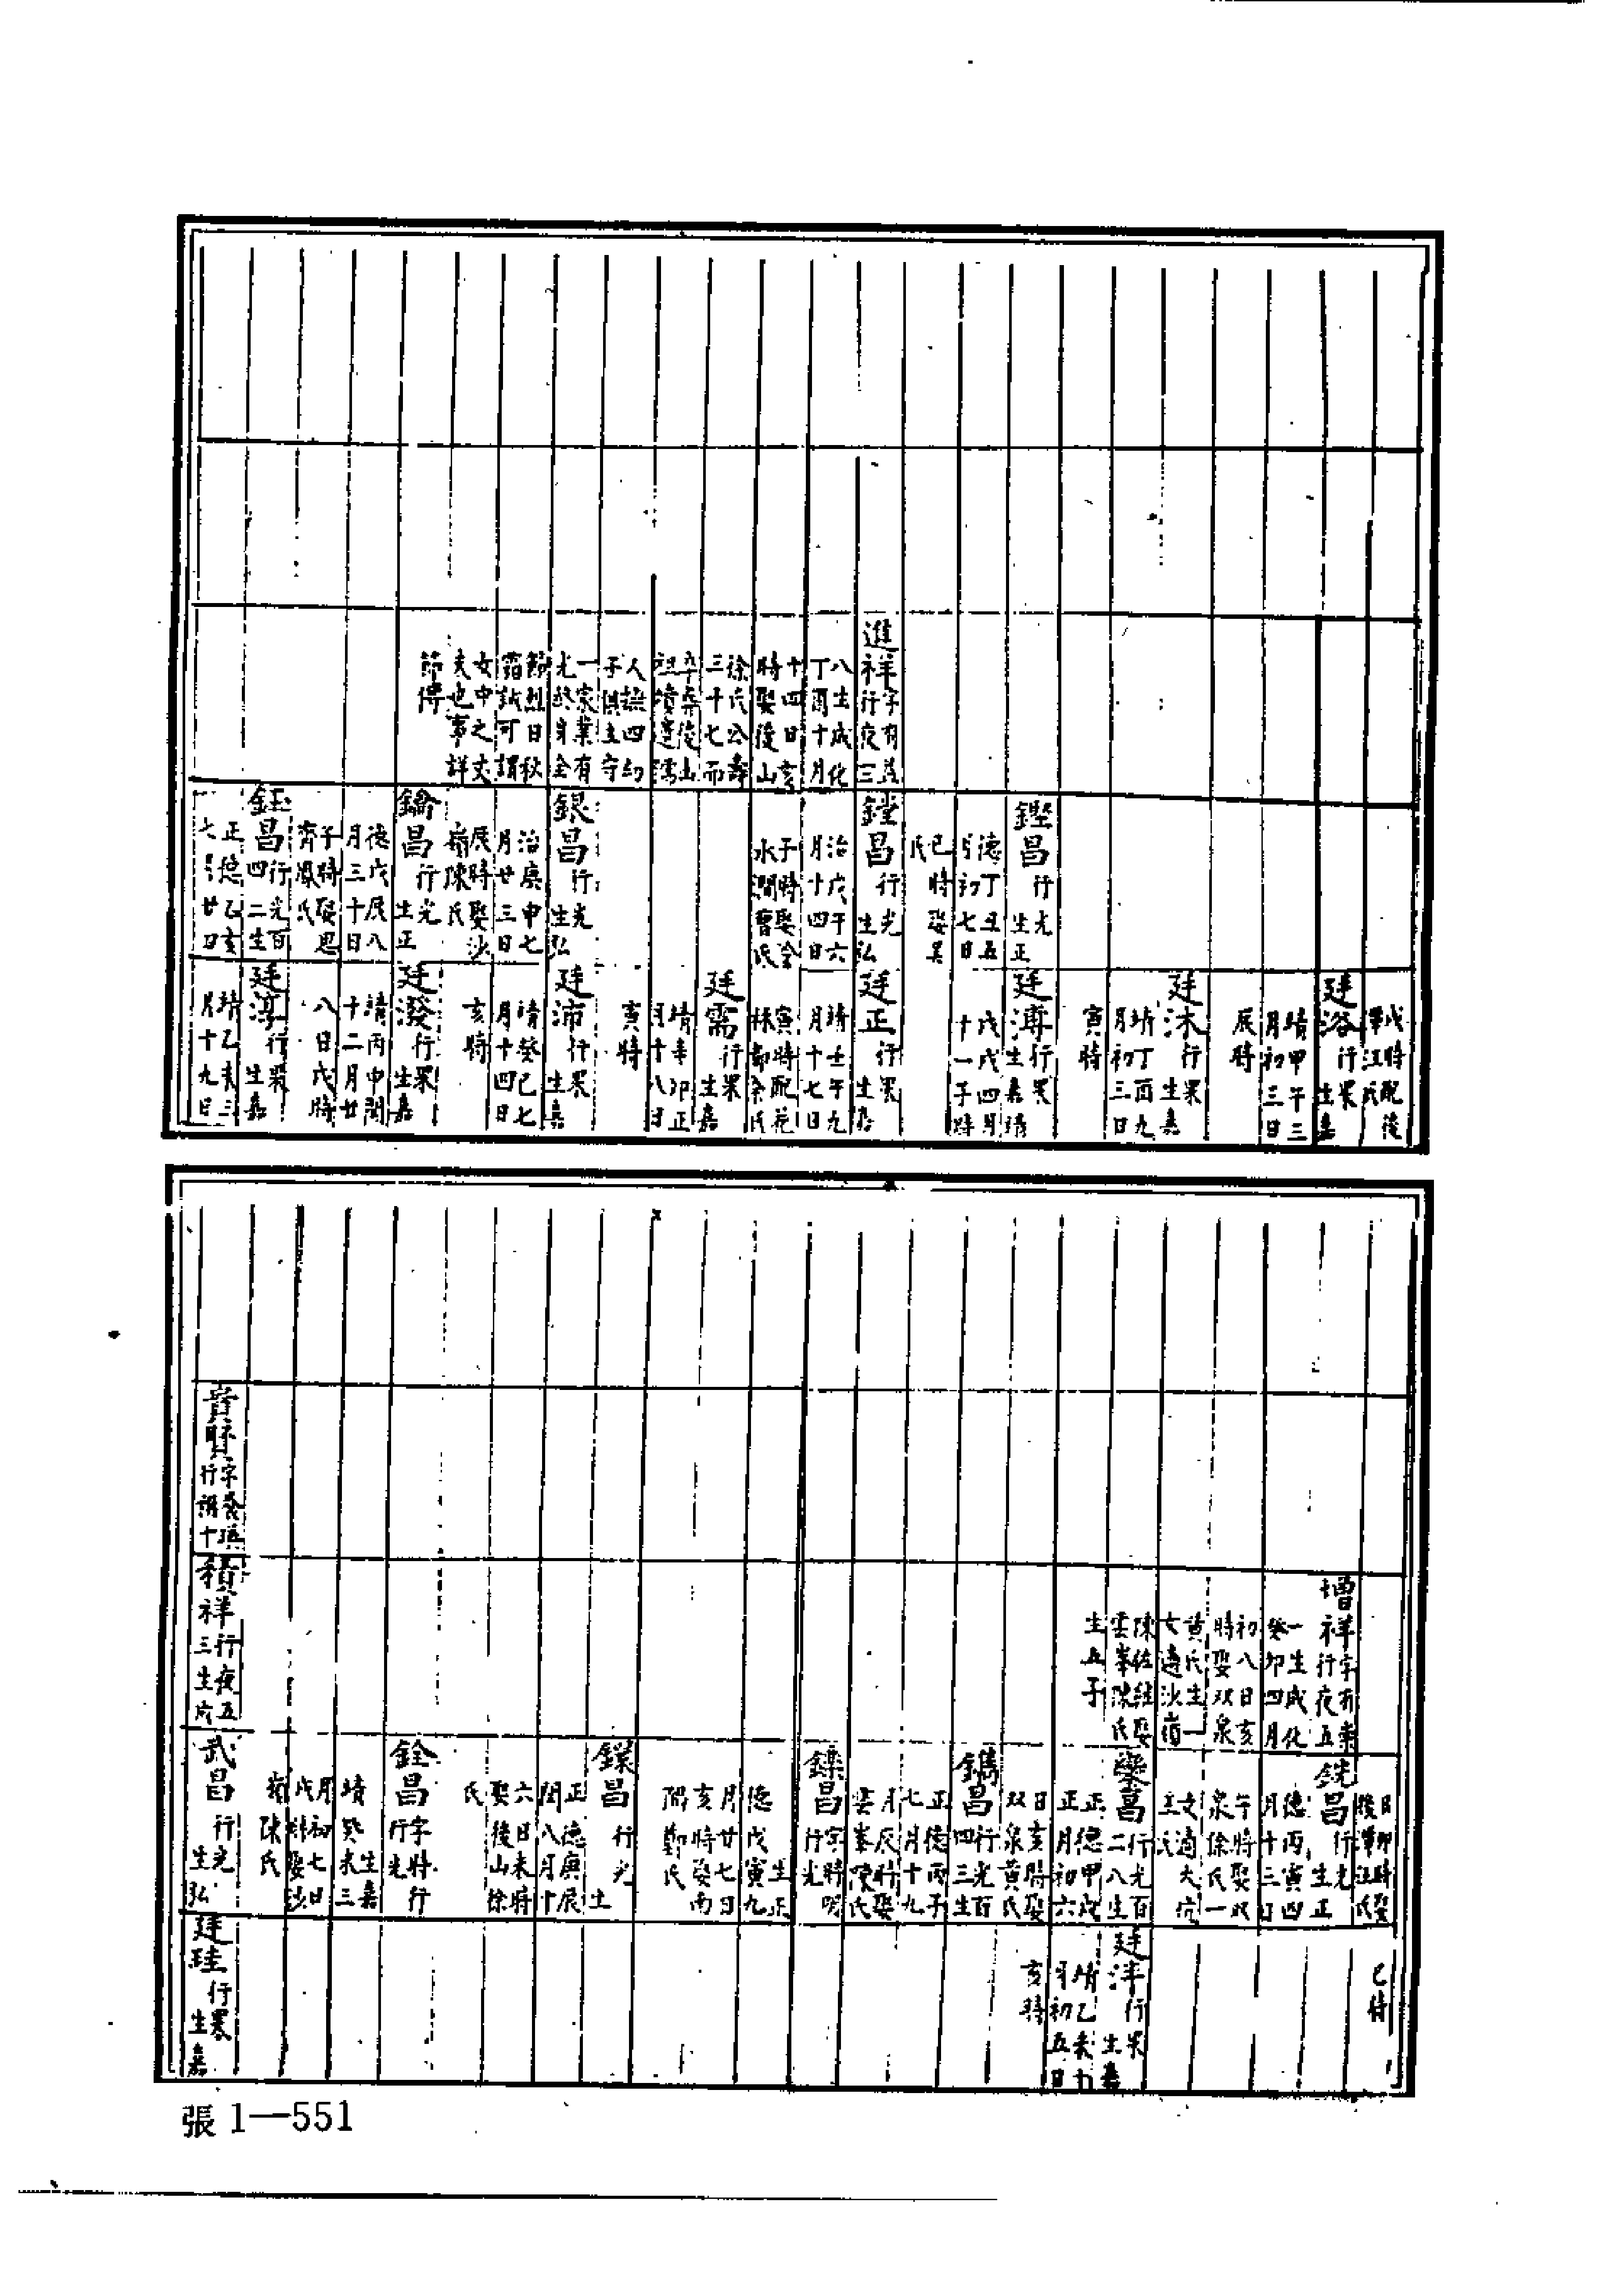 進祥字有益行夜三
八生成化丁酉十月
十四日亥時娶後山
徐氏公壽三十七而
卒
人撫四幼子俱主守
一家業有光終身全
節烈日秋霜誠可謂
女中之丈夫也事詳
節傳
鏗昌行光生正
德丁丑五月初七日
巳時娶吴氏
鏜昌行光生弘
治戊午六月十四日
子時娶金水澗曹氏
銀昌行光生弘
治庚申七月廿三日
辰時娶沙嶺陳氏
鑰昌行光生正
德戊辰八月三十日
子時娶
鈺昌行光百四二生
正德乙亥七月廿日
戌時配後潭汪氏
廷浴行杲生嘉
靖甲午三月初三日
辰時
廷沐行杲生嘉
靖丁酉九月初三日
寅時
廷溥行杲生嘉靖
戊戌四月十一子時
廷正行杲生嘉
靖壬午九月十七日
寅時配花林
廷需行杲生嘉
靖辛卯正月十八日
寅時
廷沛行杲生嘉
靖癸巳七月十四日
亥時
廷潑行杲生嘉
靖丙申閏十二月廿
八日戌時
廷淳行杲生嘉
靖乙未三月十九日
行謂十
積祥行夜五三生成
增祥字有崇行夜五
一生成化癸卯四月
初八日亥時娶双泉
黄氏生一女適沙嶺
陳佐繼娶雲峯陳氏
生五子
日卯時娶後潭汪氏
銑昌行光生正
德丙寅四月十三日
午時娶双泉徐氏一
女適大坑王氏
行光百二八生
正德甲戌正月初六
日亥時娶双泉黄氏
鐫昌行光百四三生
正德丙子七月十九
月辰時娶雲峯陳氏
鑅昌字時明行光
生正德戊寅九
月廿七日亥時娶南
閣鄭氏
鏷昌行光生
正德庚辰閏八月十
六日未時娶後山徐
氏
銓昌字時行行光
生嘉靖癸未三
月初七日戌時娶沙
嶺陳氏
武昌行光生弘
巳時
廷泮行杲生嘉
靖乙未九月初五日
亥時
廷珪行杲生嘉
張 1—551